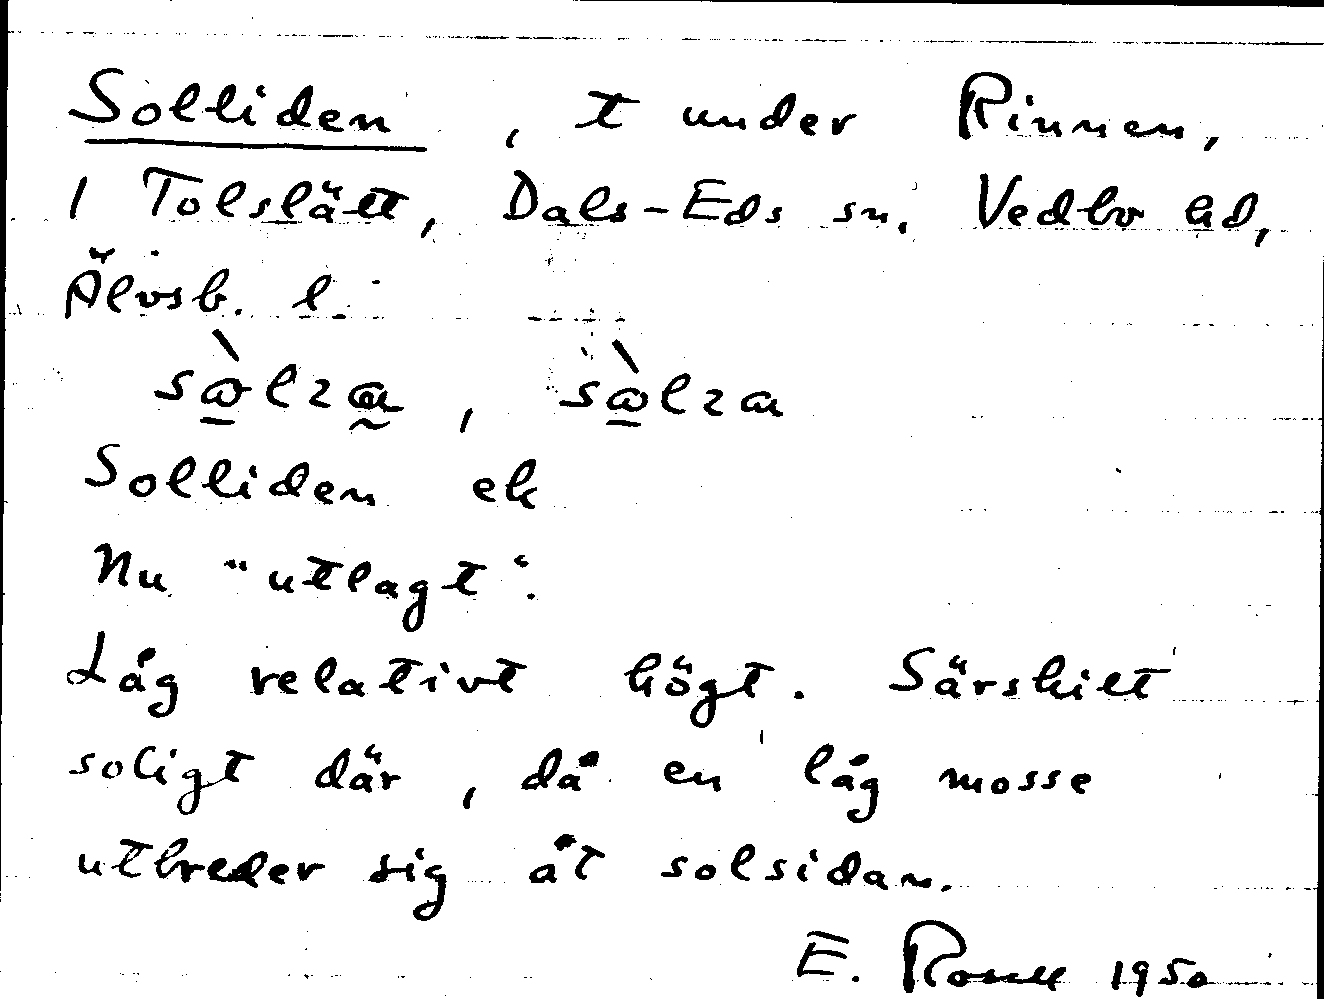 Solliden, t under Rinnen,
1 Tolslätt, Dals-Eds sn. Vedbo hd,
Älvsb. l.
Solliden ek
Nu "utlagt".
Låg relativt högt. Särskilt
soligt där, då en låg mosse
utbreder sig åt solsidan.
E. 1950